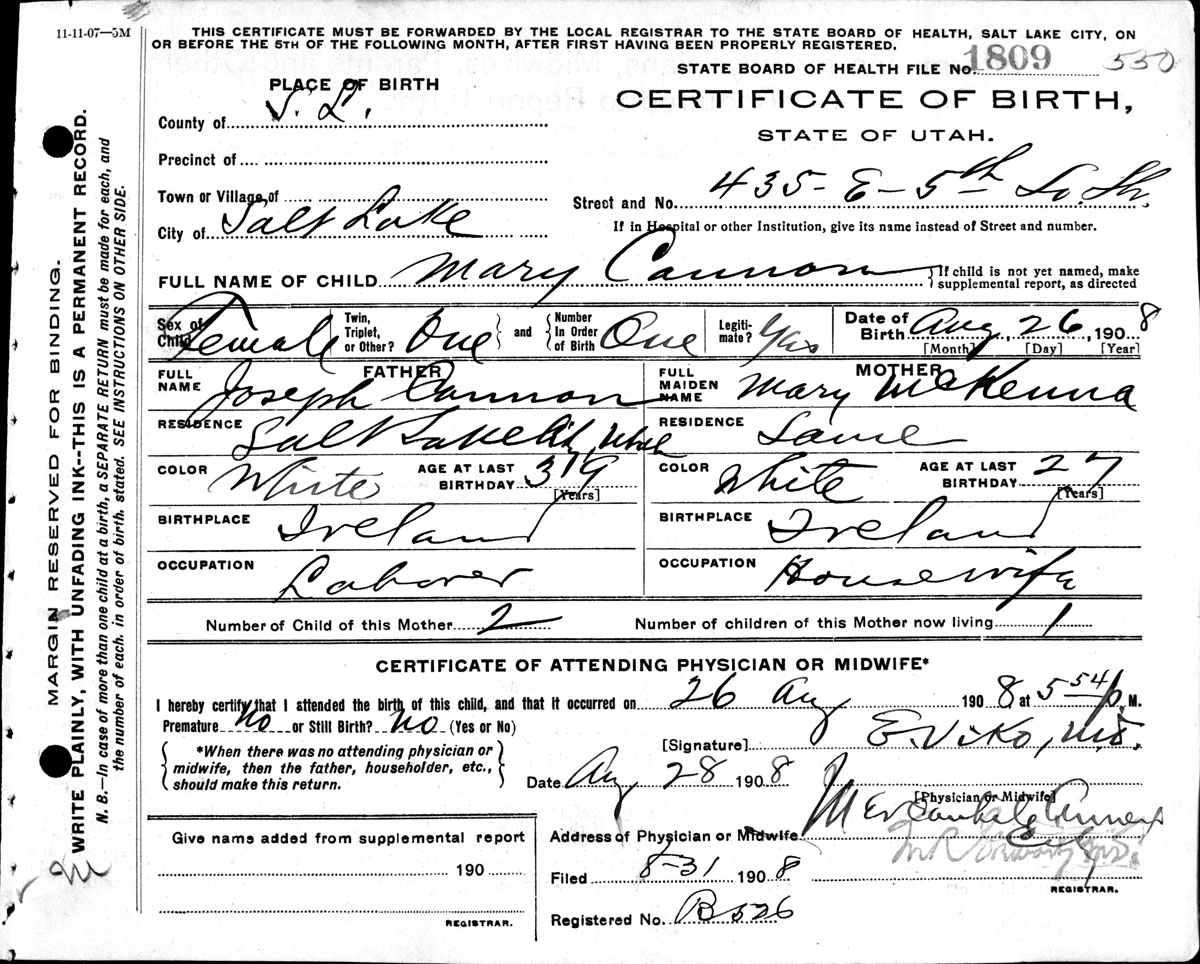 11-11-07—5M
THIS CERTIFICATE MUST BE FORWARDED BY THE LOCAL REGISTRAR TO THE STATE BOARD OF HEALTH, SALT LAKE CITY, ON
OR BEFORE THE 5TH OF THE FOLLOWING MONTH, AFTER FIRST HAVING BEEN PROPERLY REGISTERED.
STATE BOARD OF HEALTH FILE No. 1809 550
PLACE OF BIRTH
CERTIFICATE OF BIRTH,
STATE OF UTAH.
County of S. L.
Precinct of
Town or Village of
Street and No. 435-E-5th So. St.
City of Salt Lake
If in Hospital or other Institution, give its name instead of Street and number.
FULL NAME OF CHILD Mary Cannon
{If child is not yet named, make
supplemental report, as directed
Sex of Child Female
Twin, Triplet, or Other? One } and { Number In Order of Birth One
Legiti-mate? Yes
Date of Birth Aug 26, 1908
[Month] [Day] [Year]
FATHER
FULL NAME Joseph Cannon
RESIDENCE Salt Lake City, Utah
COLOR White AGE AT LAST BIRTHDAY 39 [Years]
BIRTHPLACE Ireland
OCCUPATION Laborer
MOTHER
FULL MAIDEN NAME Mary McKenna
RESIDENCE Same
COLOR White AGE AT LAST BIRTHDAY 27 [Years]
BIRTHPLACE Ireland
OCCUPATION Housewife
Number of Child of this Mother 2 Number of children of this Mother now living 1
CERTIFICATE OF ATTENDING PHYSICIAN OR MIDWIFE*
I hereby certify that I attended the birth of this child, and that it occurred on 26 Aug 1908 at 5 54 p. M.
Premature No or Still Birth? No (Yes or No)
[Signature] E. Viko, M.D.
{ *When there was no attending physician or
midwife, then the father, householder, etc.,
should make this return. }
Date Aug 28 1908
[Physician or Midwife]
Address of Physician or Midwife
Filed 8-31 1908
REGISTRAR.
Registered No. B 526
Give name added from supplemental report
190
REGISTRAR.
MARGIN RESERVED FOR BINDING.
WRITE PLAINLY, WITH UNFADING INK--THIS IS A PERMANENT RECORD.
N. B.—In case of more than one child at a birth, a SEPARATE RETURN must be made for each, and
the number of each, in order of birth, stated. SEE INSTRUCTIONS ON OTHER SIDE.